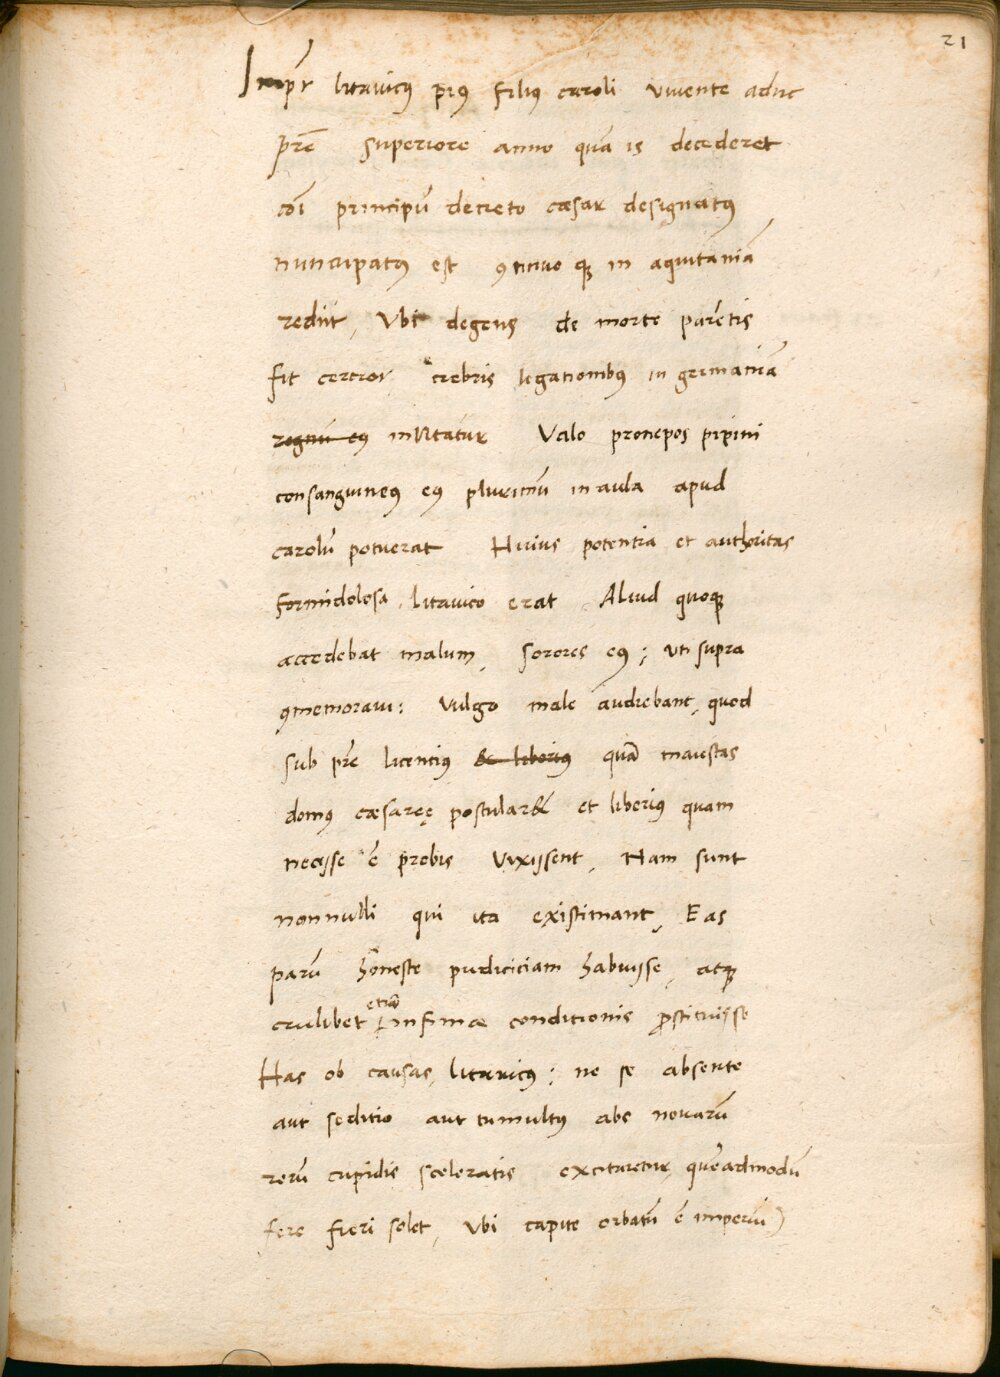 21
Imper litavicus pius filius caroli vivente aduc
pr̃e superiore anno quã is decederet
cõi principũ decreto cæsar designatus
nuncupatus est ꝯtinuo qꝫ in aquitaniã
rediit, Vbi degens de morte parẽtis
fit certior crebris legationibus in germaniã
regnũ eius invitatur Valo pronepos pipini
consanguineus eius plurimũ in aula apud
carolũ potuerat Huius potentia et authoritas
formidolosa litavico erat Aliud quoqꝫ
accedebat malum, sorores eius; uti supra
ꝯmemoravi: vulgo male audiebant, quod
sub pr̃e licentius & liberius quã maiestas
domus cæsaręę postular& et liberius quam
necesse ẽ probis vixissent, Nam sunt
nonnulli qui ita existimant, Eas
parũ honeste pudiciciam habuisse, atqꝫ
cuilibet etiã infimæ conditionis prostituisse
Has ob causas, litavicus; ne se absente
aut seditio aut tumultus abs novarũ
rerũ cupidis sceleratis excitaretur, quẽadmodũ
fere fieri solet, Vbi capite orbatũ ẽ imperiũ)